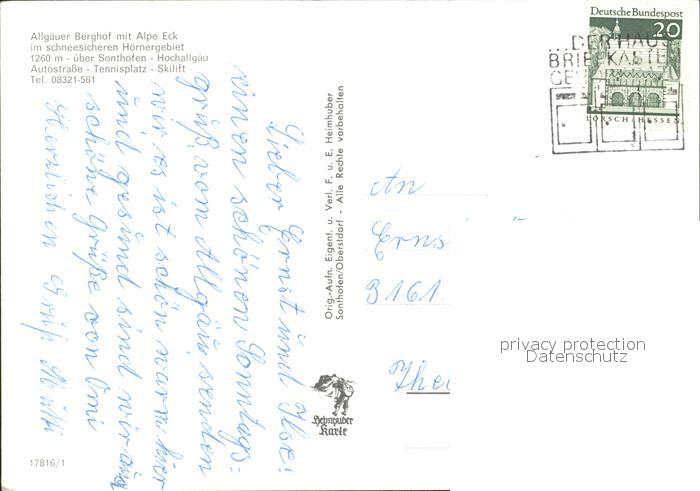 Allgäuer Berghof mit Alpe Eck
im schneesicheren Hörnergebiet
1260 m - über Sonthofen - Hochallgäu
Autostraße - Tennisplatz - Skilift
Tel. 08321-561
Lieber Ernst und Ilse!
einen schönen Sonntags=
grüß vom Allgäu senden
wir es ist schön warm hier
und gesund sind wir auch
schöne grüße von Omi
Herzlichen Grüß Mutti
Orig.-Aufn. Eigent. u. Verl. F. u. E. Heimhuber
Sonthofen/Oberstdorf - Alle Rechte vorbehalten
Heimhuber
Karte
An
Erns
3161
Deutsche Bundespost
20
LORSCH/HESSEN
...DER HAUS
BRIEFKASTEN
privacy protection
Datenschutz
17816/1